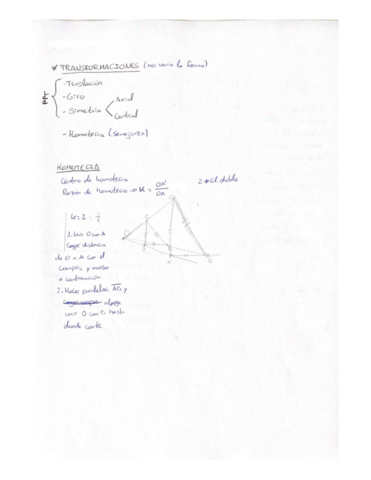 * TRANSFORMACIONES (no varia la forma)
- Traslación
- Giro
- Simetría
Axial
Central
- Homotecia (semejanza)
HOMOTECIA
Centro de homotecia
Razón de homotecia → K = OA'/OA
2 → el doble
K=2 : 2/1
1. Unir O con A
Coger distancia
de O a A con el
compás y marcar
a continuación
2. Hacer paralelas AB y
unir O con hasta
donde corte